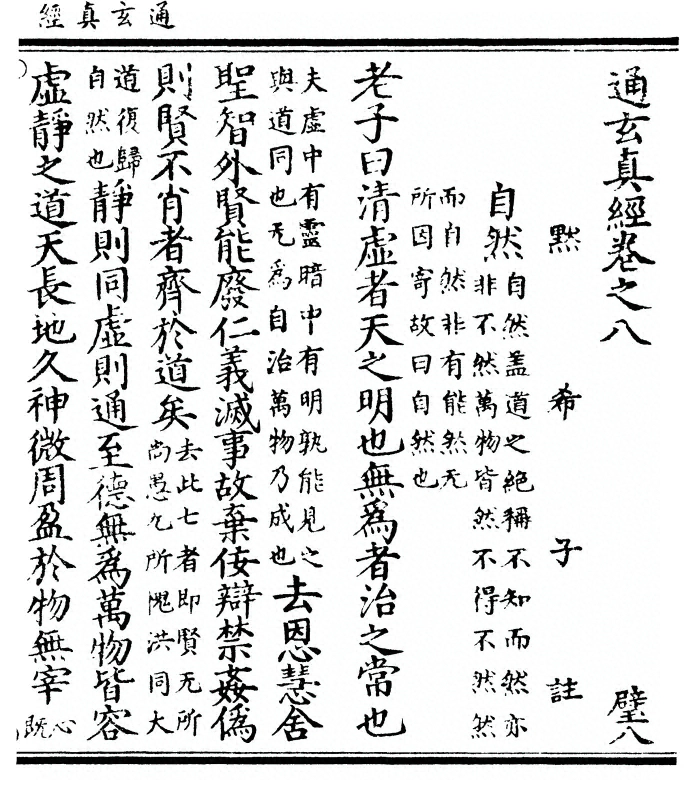 通玄真經
通玄真經卷之八 璧八
黙希子註
自然 自然盖道之絶稱不知而然亦
非不然萬物皆然不得不然然
而自然非有能然无
所因寄故曰自然也
老子曰清虛者天之明也無爲者治之常也
夫虛中有靈暗中有明孰能見之
與道同也无爲自治萬物乃成也 去恩慧舍
聖智外賢能廢仁義滅事故棄佞辯禁姦僞
則賢不肖者齊於道矣 去此七者即賢无所
尚愚九所愧洪同大
道復歸
自然也 靜則同虛則通至德無爲萬物皆容
虛靜之道天長地久神微周盈於物無宰 心
既